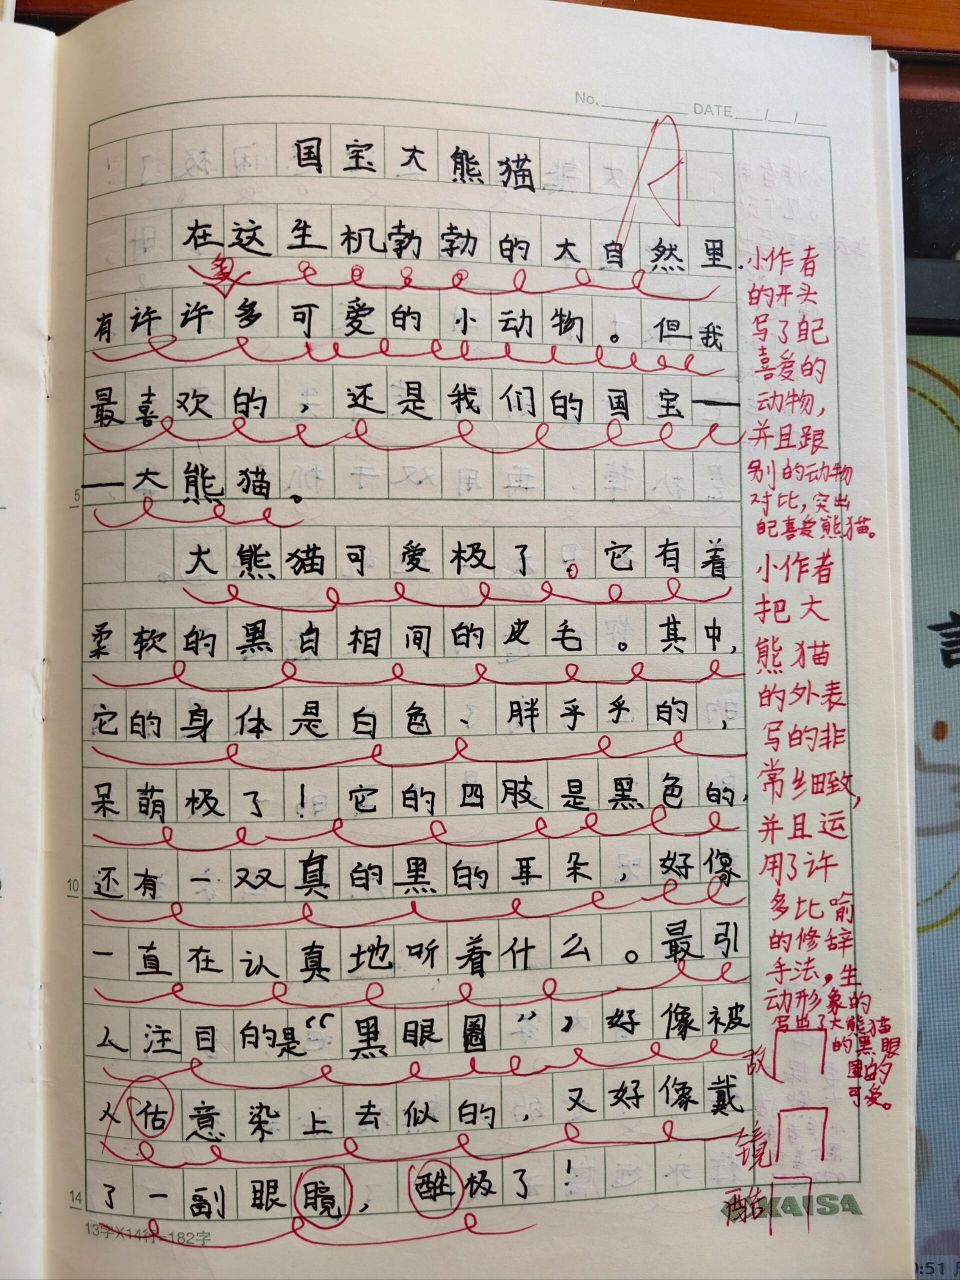 No. DATE / /
国宝大熊猫
在这生机勃勃的大自然里
有许许多可爱的小动物。但我
多
最喜欢的，还是我们的国宝—
—大熊猫。
5
大熊猫可爱极了。它有着
柔软的黑白相间的皮毛。其中，
它的身体是白色、胖乎乎的，
呆萌极了！它的四肢是黑色的，
还有一双真的黑的耳朵，好像
10
一直在认真地听着什么。最引
人注目的是“黑眼圈”，好像被
人估意染上去似的，又好像戴
了一副眼
极了！
14
13字X14行=182字
KAISA
小作者
的开头
写了自己
喜爱的
动物，
并且跟
别的动物
对比，突出
自己喜爱熊猫。
小作者
把大
熊猫
的外表
写的非
常细致，
并且运
用了许
多比喻
的修辞
手法，生
动形象的
写出了大熊猫
的黑眼
圈的
可爱。
故
镜
酷
:51